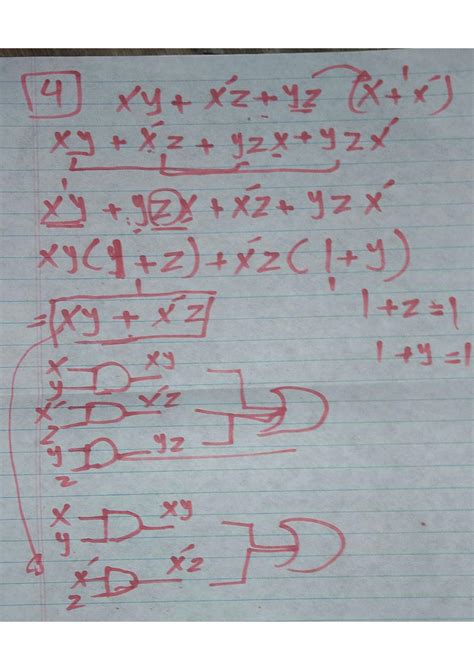 4 x'y + x'z + yz (x + x')
1
xy + x'z + yzx + yzx'
x'y + yzx + x'z + yzx'
xy(1+z) + x'z(1+y)
1 1
= xy + x'z
1+z=1
1+y=1
x
y
xy
x'
z
x'z
y
z
yz
x
y
xy
x'
z
x'z